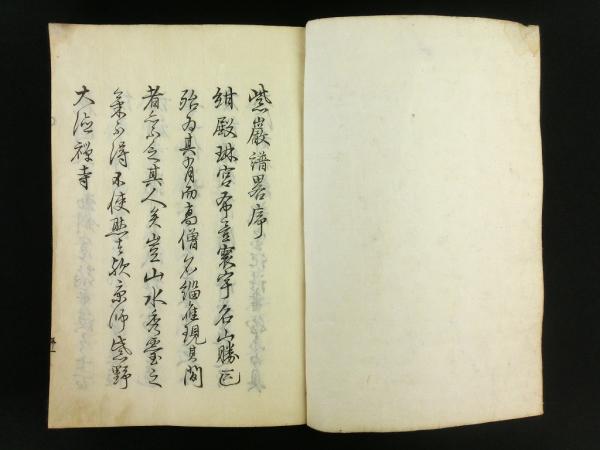 紫巖譜畧序
紺殿琳宮布立寰宇名山勝區
殆為其有而高僧名緇隹現其間
者亦不乏其人矣豈山水秀靈之
氣不得不使然与歟京師紫野
大德禅寺